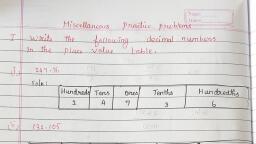 Miscellaneous practice problems
I Write the following decimal numbers
in the place value table.
247.36
Soln:
Hundreds Tens Ones Tenths Hundredths
2 4 7 3 6
132.105